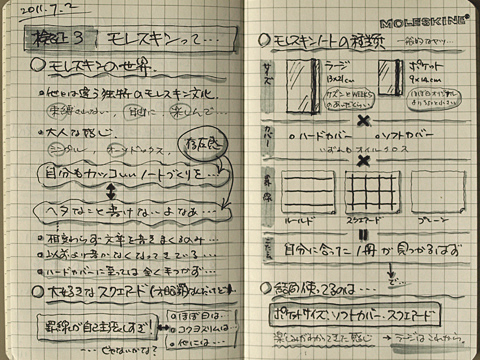 2011.7.2
検証3 モレスキンって…
モレスキンの世界.
・他とは違う独特のモレスキン文化.
束縛されない, 自由に, 楽しんで…
・大人な感じ.
シンプル, オーソドックス, 存在感
自分もカッコいいノートづくりを…
ヘタなこと書けないよなぁ…
相変わらず文章を書きまくるのみ…
以前より書かなくなってきている…
ハードカバーに至っては全く手つかず…
大好きなスクエアード
罫線が自己主張しすぎ!
・ほぼ日は…
・コクヨスリムは…
・他には…
…じゃないかな?
MOLESKINE®
モレスキンノートの種類 一般的なヤツ…
サイズ
ラージ
13×21cm
ポケット
9×14cm
カバー
・ハードカバー ・ソフトカバー
いずれもオイルクロス
罫線
ルールド スクエアード プレーン
自分に合った1冊が見つかるはず
で…
結局使ってるのは…
ポケットサイズ. ソフトカバー. スクエアード
楽しみがわかってきた感じ → ラージはこれから.